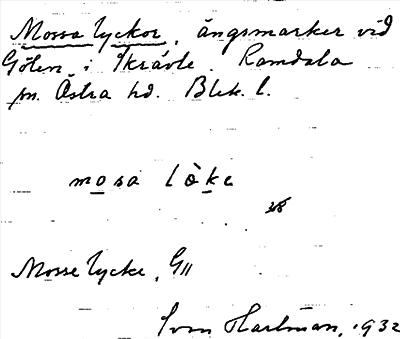 Mossa lyckor, ängsmarker vid
Gölen i Skrävle. Ramdala
sn. Östra hd. Blek. l.
mosa lòke
Mosse lycke, G11
Sven Hartman, 1932